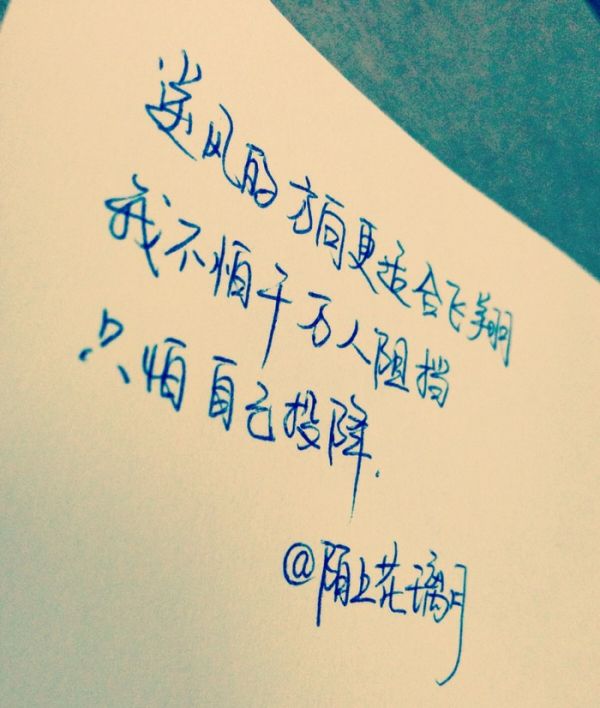 逆风的方向更适合飞翔
我不怕千万人阻挡
只怕自己投降.
@陌上花璃月